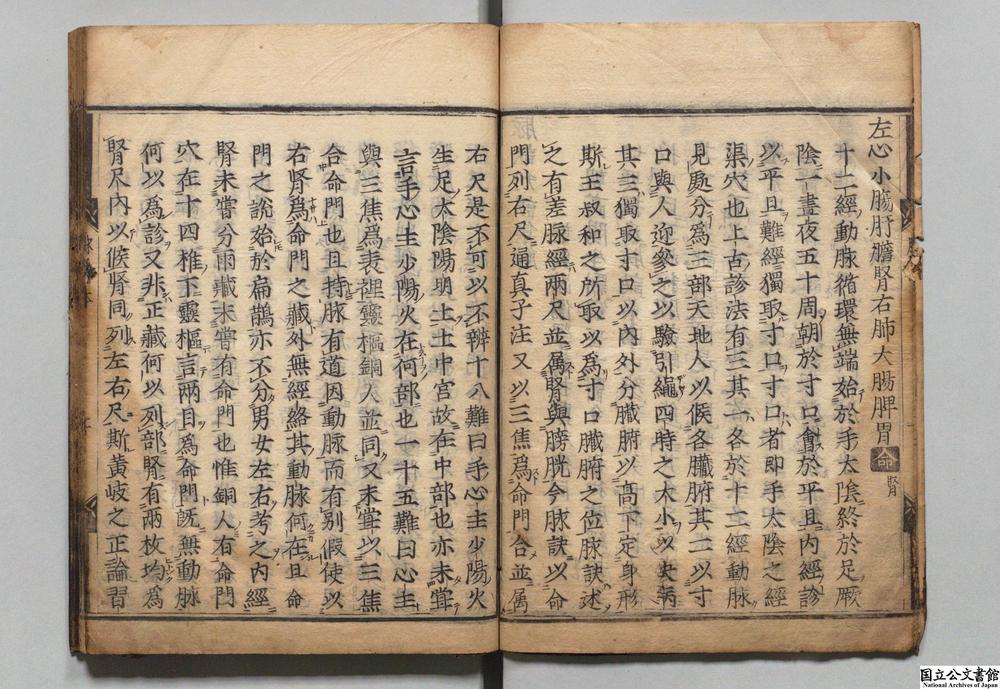 左心小腸肝膽腎右肺大腸脾胃命腎
十二經動脉循環無端始於手太陰終於足厥
陰一晝夜五十周朝於寸口會於平旦内經診
以平旦難經獨取寸口寸口者即手太陰之經
渠穴也上古診法有三其一各於十二經動脉
見處分為三部天地人以候各臟腑其二以寸
口與人迎參之以驗引繩四時之大小以史病
其三獨取寸口以內外分臟腑以高下定身形
斯王叔和之所取以為寸口臟腑之位脉訣述
之有差脉經兩尺並属腎與膀胱今脉訣以命
門列右尺通真子注又以三焦為命門合並属
右尺是不可以不辨十八難曰手心主少陽火
生足太陰陽明土土中宮故在中部也亦未甞
言手心主少陽火在何部也一十五難曰心主
與三焦為表裡靈樞銅人並同又未甞以三焦
合命門也且持脉有道因動脉而有别假使以
右肾為命門之藏外無經絡其動脉何在且命
門之說始於扁鵲亦不分男女左右考之内經
腎未甞分兩藏未甞有命門也惟銅人有命門
穴在十四椎下靈樞言兩目為命門旣無動脉
何以為診又非正藏何以列部腎有兩枚均為
腎尺內以候腎同列左右尺斯黄岐之正論習
国立公文書館
National Archives of Japan